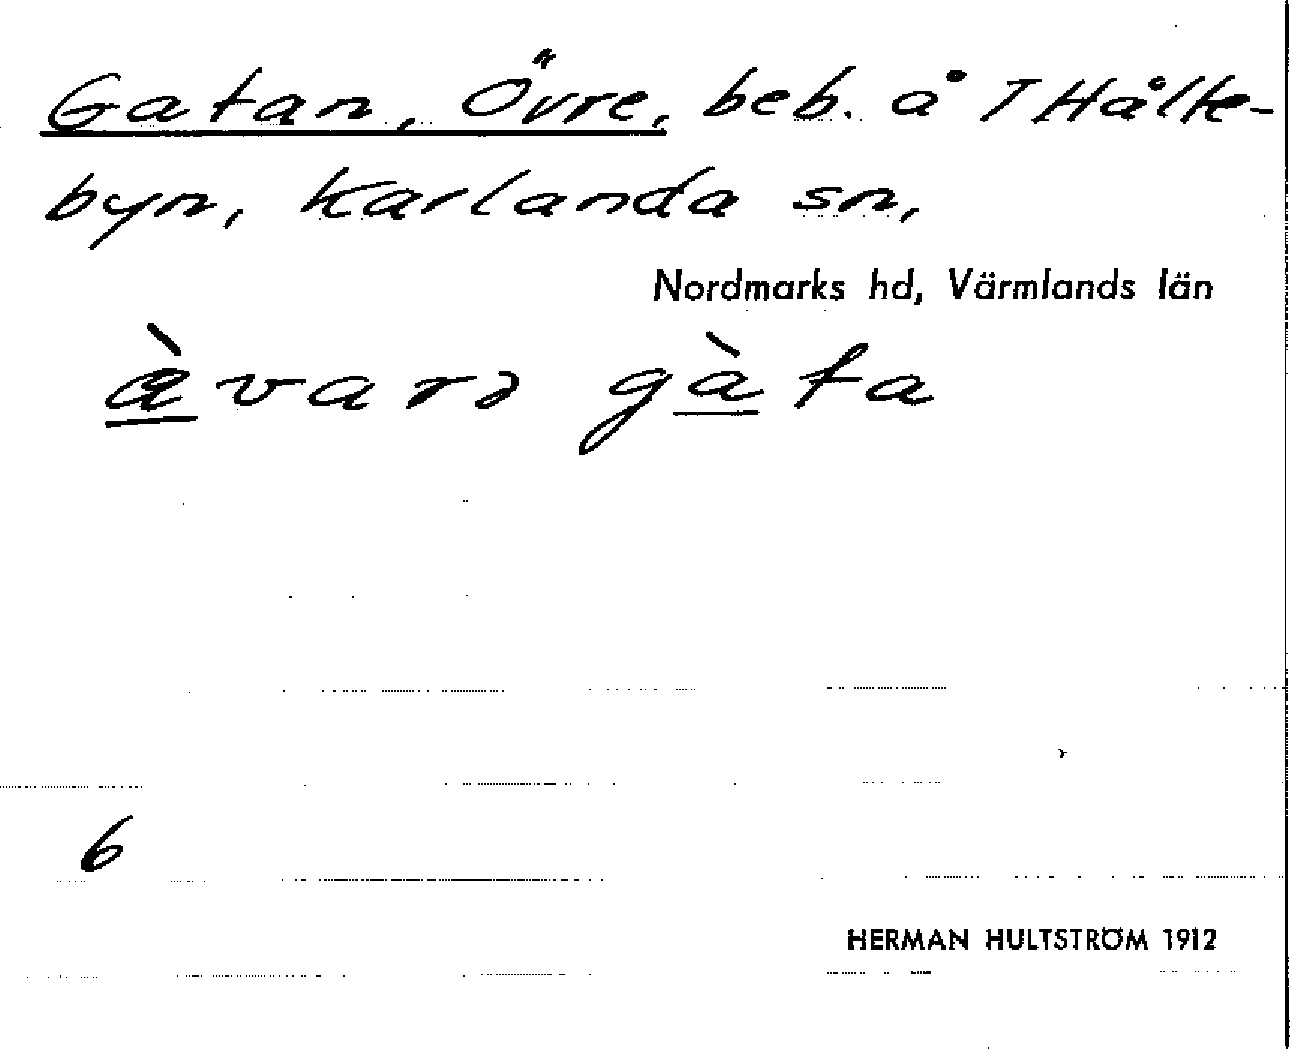 Gatan, Övre, beb. å 7 Hålte-
byn, Karlanda sn,
Nordmarks hd, Värmlands län
àvarə gàta
6
HERMAN HULTSTRÖM 1912